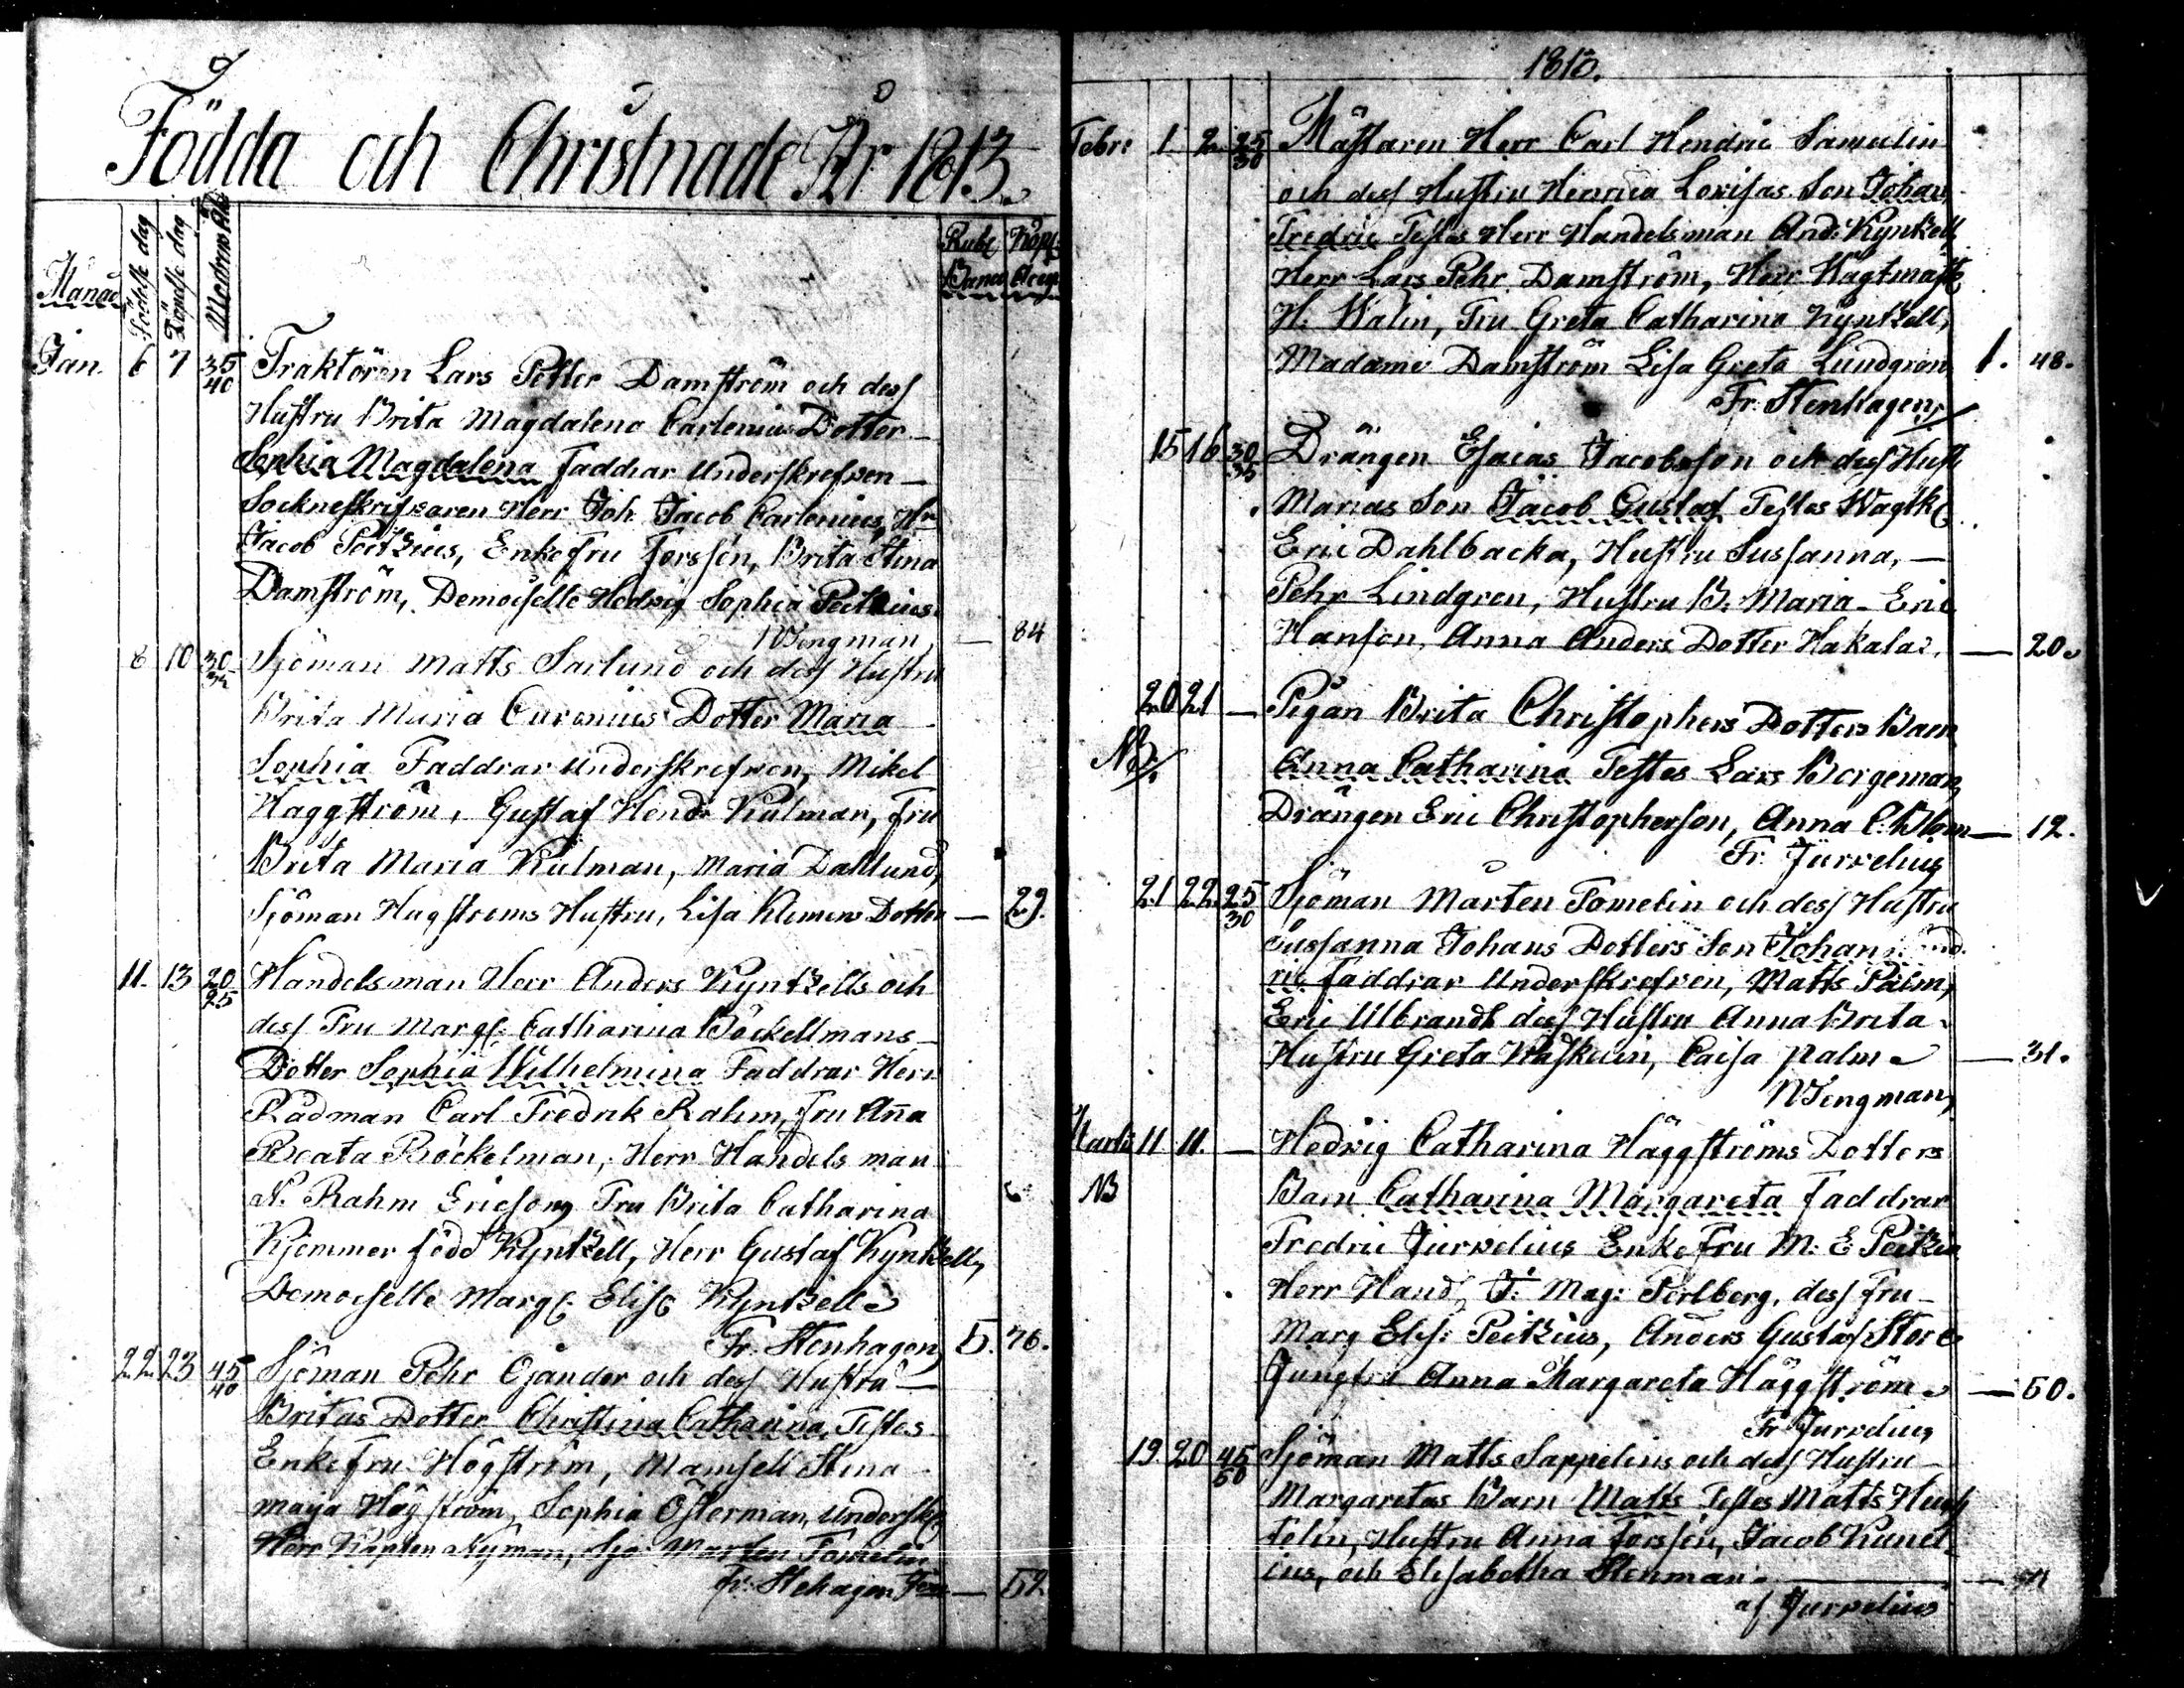 Födda och Christnade År 1813.
Månad Födelse dag Döpelse dag Modrens Ålder Rubl Kop:
Banco
Jan. 6 7 35/40 Traktören Lars Petter Damström och dess
Hustru Brita Magdalena Carlenius Dotter
Sophia Magdalena, Faddrar Underskrefven
Sockneskrifvaren Herr Joh. Jacob Carlenius, Hr
Jacob Peitzius, Enkefru Forssén, Brita Stina
Damström, Demoiselle Hedvig Sophia Peitzius.
Wengman, — 84
6 10 30 Sjöman Matts Sarlund och dess Hustru
Brita Maria Curenius Dotter Maria
Sophia Faddrar Underskrefven, Mikel
Haggström, Gustaf Hend: Kulman, Fru
Brita Maria Kulman, Maria Dahlund,
Sjöman Hagströms Hustru, Lisa Klemens Dotter — 29.
11. 13 20/25 Handelsman Herr Anders Kyntzells och
dess Fru Marg: Catharina Böckellmans
Dotter Sophia Wilhelmina Faddrar Herr
Rådman Carl Fredrik Rahm, Fru Aña
Beata Böckelman, Herr Handelsman
N. Rahm Ericson, Fru Brita Catharina
Kjemmer född Kyntzell, Herr Gustaf Kyntzell,
Demoiselle Marg: Elis: Kyntzell
Fr. Stenhagen, 5. 76.
22 23 45/40 Sjöman Pehr Ojander och dess Hustru
Britas Dotter Christina Catharina, Testes
Enkefru Högström, Mamsell Stina
Maja Högström, Sophia Österman, Undersk:
Herr Kapten Nyman, Sjö: Marten Tomelin
Fr: Stehagen — 52
1813.
Febr: 1 2 25/30 Mästaren Herr Carl Hendric Samulin
och dess Hustru Henrica Lovisas Son Johan
Fredric Testes Herr Handelsman And: Kyntzell
Herr Lars Pehr Damström, Herr Wagtmast
H: Walin, Fru Greta Catharina Kyntzell,
Madame Damström Lisa Greta Lundgren 1. 48.
Fr. Stenhagen,
15 16 30/35 Drängen Esaias Jacobsson och dess Hust
Marias Son Jacob Gustaf Testes Wagtk:
Eric Dahlbacka, Hustru Sussanna,
Pehr Lindgren, Hustru B: Maria Eric
Hanson, Anna Anders Dotter Hakala. — 20.
20 21 — Pigan Brita Christophers Dotters Barn
NB. Anna Catharina Testes Lars Borgeman,
Drängen Eric Christopherson, Anna C. Blom — 12.
Fr. Jurvelius
21 22 25/30 Sjöman Mårten Tomelin och dess Hustru
Sussanna Johans Dotters Son Johan
ric Faddrar Underskrefven, Matts Palm,
Eric Ulbrandt dess Hustru Anna Brita
Hustru Greta Waskuin, Caisa Palm — 31.
Wengman,
Martii 11 11. — Hedvig Catharina Häggströms Dotters
NB Barn Catharina Margareta Faddrar
Fredric Jurvelius Enke Fru M: E: Peitzius
Herr Hand: J: Mag: Forlberg, dess Fru
Marg Elis: Peitzius, Anders Gustaf Store
Jungfru Anna Margareta Häggström — 60.
Fr Jurvelius
19 20 45/50 Sjöman Matts Sappelius och dess Hustru
Margaretas Barn Matts Testes Matts Hem
felin, Hustru Anna Forssén, Jacob Kunel
ius, och Elisabetha Stenman.
af Jurvelius